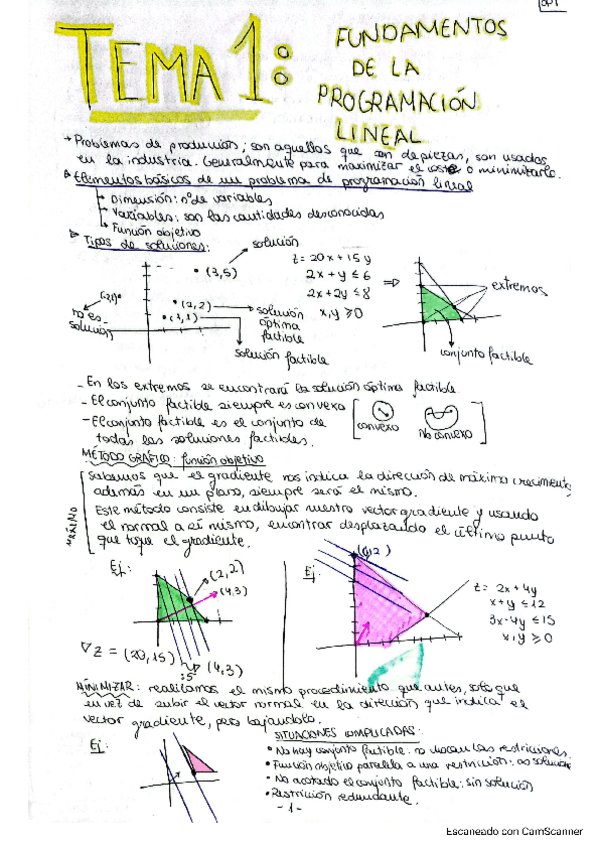 OPT
TEMA 1:
FUNDAMENTOS
DE LA
PROGRAMACIÓN
LINEAL
→ Problemas de producción; son aquellos que son de piezas, son usados
en la industria. Generalmente para maximizar el coste o minimizarlo.
Elementos básicos de un problema de programación lineal
Dimensión: nº de variables
Variables: son las cantidades desconocidas
Función objetivo
Tipos de soluciones:
solución
(3,5)
z = 20x + 15y
2x + y ≤ 6
2x + 2y ≤ 8
x, y ≥ 0
⇒
extremos
no es
solución
(2,2)
solución
óptima
factible
(1,1)
solución factible
conjunto factible
- En los extremos se encontrará la solución óptima factible
- El conjunto factible siempre es convexo
convexo
No convexo
- El conjunto factible es el conjunto de
todas las soluciones factibles.
MÉTODO GRÁFICO: función objetivo
MÁXIMO
Sabemos que el gradiente nos indica la dirección de máximo crecimiento,
además en un plano, siempre será el mismo.
Este método consiste en dibujar nuestro vector gradiente y usando
el normal a él mismo, encontrar desplazando el último punto
que toque el gradiente.
Ej:
(2,2)
(4,3)
∇z = (20,15)
:5
(4,3)
Ej:
(0,12)
z = 2x + 4y
x + y ≤ 12
3x - 4y ≤ 15
x, y ≥ 0
MINIMIZAR: realizamos el mismo procedimiento que antes, solo que
en vez de subir el vector normal en la dirección que indica el
vector gradiente, pero bajándolo.
Ej:
SITUACIONES COMPLICADAS:
• No hay conjunto factible: no chocan las restricciones.
• Función objetivo paralela a una restricción: ∞ solución
• No acotado el conjunto factible: sin solución
• Restricción redundante.
- 1 -
Escaneado con CamScanner